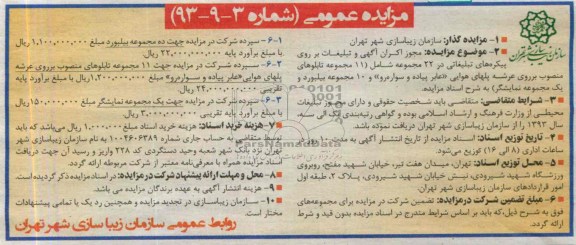 مزایده عمومی (شماره ۳-۹-۹۳)
سازمان زیباسازی شهر تهران
۱- مزایده گذار: سازمان زیباسازی شهر تهران
۲- موضوع مزایده: مجوز اکران آگهی و تبلیغات بر روی
پیکره‌های تبلیغاتی در ۲۲ مجموعه شامل (۱۱ مجموعه تابلوهای
منصوب برروی عرشه پلهای هوایی «عابر پیاده و سواره‌رو» و ۱۰ مجموعه بیلبورد و
یک مجموعه نمایشگر) به شرح اسناد مزایده.
۳- شرایط متقاضی: متقاضی باید شخصیت حقوقی و دارای مجوز تبلیغات
محیطی از وزارت فرهنگ و ارشاد اسلامی بوده و گواهی رتبه‌بندی یک الی سه،
سال ۱۳۹۲ را از سازمان زیباسازی شهر تهران دریافت نموده باشد.
۴- تاریخ توزیع اسناد: اسناد مزایده از تاریخ انتشار آگهی به مدت روز در
ساعات اداری (۸ الی ۱۶) توزیع می‌شود.
۵- محل توزیع اسناد: تهران، میدان هفت تیر، خیابان شهید مفتح، روبروی
ورزشگاه شهید شیرودی، نبش خیابان شهید شیرودی، پلاک ۲، طبقه اول
امور قراردادهای سازمان زیباسازی شهر تهران.
۶- مبلغ تضمین شرکت درمزایده: تضمین شرکت در مزایده برای مجموعه‌های
فوق به شرح ذیل،که باید بر اساس شرایط مندرج در اسناد مزایده بدون قید و شرط
ارائه گردد.
۱-۶- سپرده شرکت در مزایده جهت ده مجموعه بیلبورد مبلغ ۱,۱۰۰,۰۰۰,۰۰۰ ریال
با مبلغ برآورد پایه ۲۲,۰۰۰,۰۰۰,۰۰۰ ریال.
۲-۶- سپرده شرکت در مزایده جهت ۱۱ مجموعه تابلوهای منصوب برروی عرشه
پلهای هوایی «عابر پیاده و سواره‌رو» مبلغ ۱,۲۰۰,۰۰۰,۰۰۰ ریال با مبلغ برآورد پایه
تقریبی ۲۴,۰۰۰,۰۰۰,۰۰۰ ریال.
۳-۶- سپرده شرکت در مزایده جهت یک مجموعه نمایشگر مبلغ ۱۵۰,۰۰۰,۰۰۰ ریال
با مبلغ برآورد پایه تقریبی ۳,۰۰۰,۰۰۰,۰۰۰ ریال.
۷- هزینه خرید اسناد: هزینه خرید اسناد مبلغ ۱,۰۰۰,۰۰۰ ریال می‌باشد که باید
توسط متقاضی به حساب جاری شماره ۱۰۰۴۶۰۶۳۸۹ به نام سازمان زیباسازی شهر
تهران نزد بانک شهر شعبه وحید دستگردی کد ۲۲۸ واریز و رسید آن جهت دریافت
اسناد مزایده همراه با معرفی‌نامه معتبر از شرکت مربوطه ارائه گردد.
۸- محل و مهلت ارائه پیشنهاد شرکت در مزایده: در اسناد مزایده ذکر گردیده است.
۹- هزینه انتشار آگهی به عهده برندگان مزایده می باشد.
۱۰- سازمان زیباسازی در تجدید مزایده و همچنین رد یک یا تمامی پیشنهادات
مختار است.
روابط عمومی سازمان زیبا سازی شهر تهران